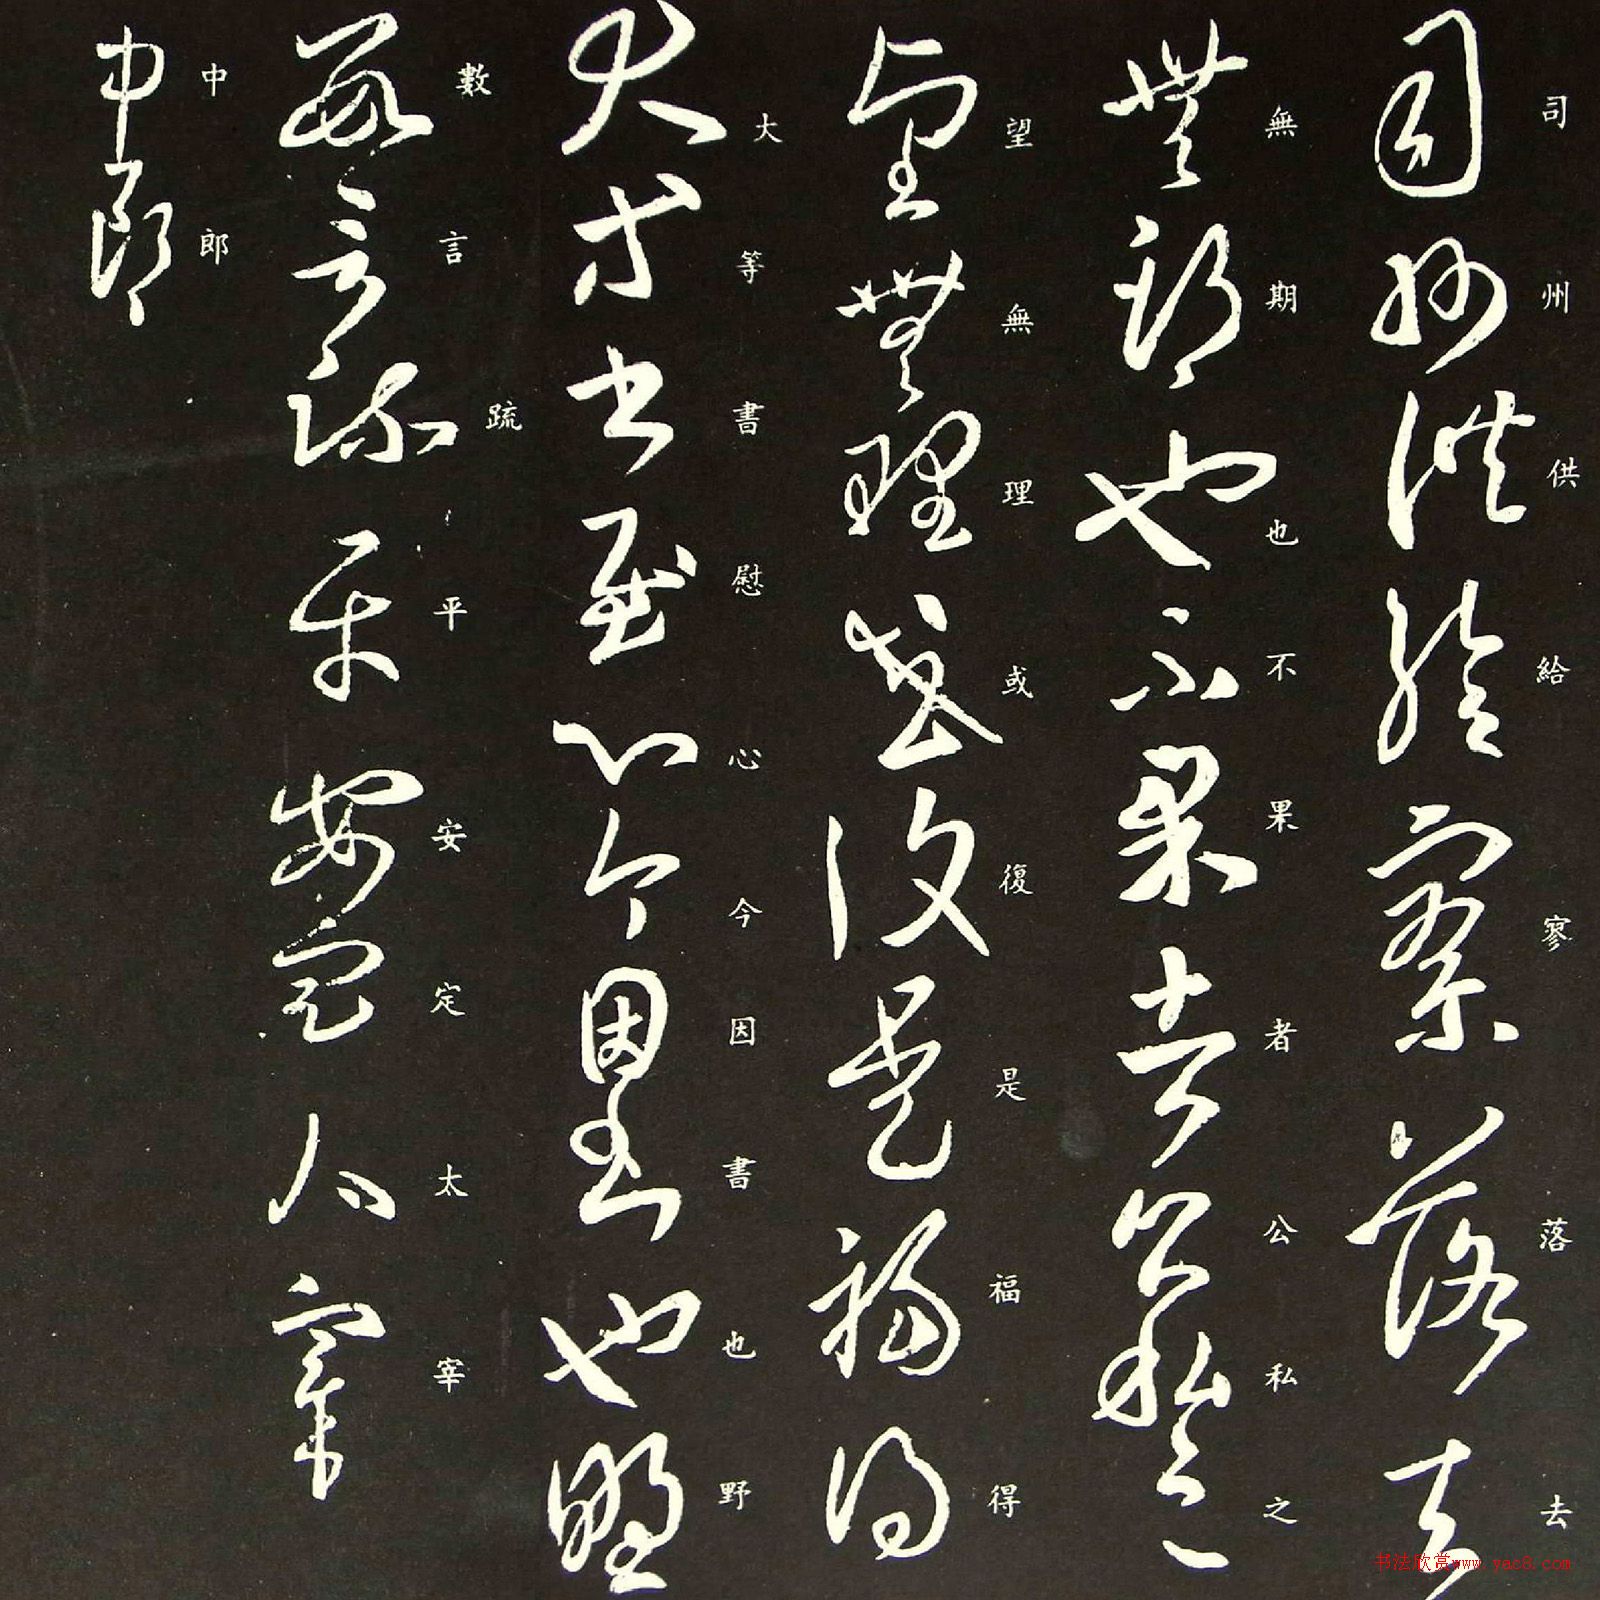 司州供給寥落去
無期也不果者公私之
望無理或復是福得
大等書慰心今因書也野
數言疏平安定太宰
中郎
书法欣赏www.yac8.com